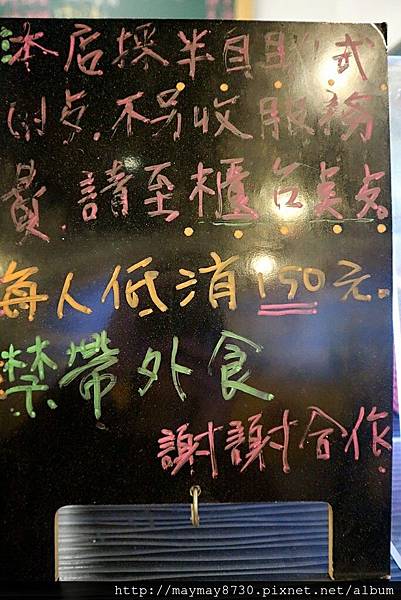 本店採半自助式
付点.不另收服務
費.請至櫃台点点
每人低消150元。
禁帶外食
謝謝合作
http://maymay8730.pixnet.net/album